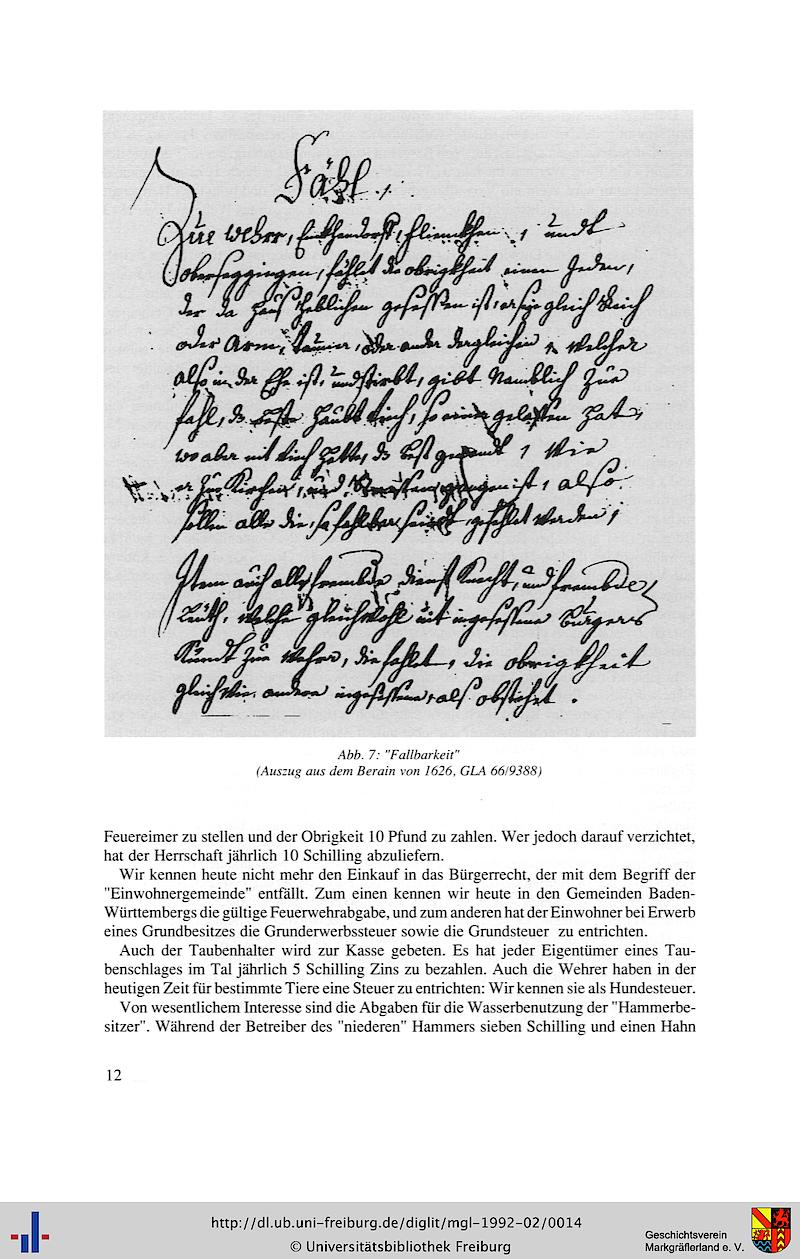 Fähl
Zue Wehr, Enkhendorff, Flienckhen, undt
oberseggingen, fählet die obrigkheit einen Jeden,
der da haus heblichen gesessen ist, er sye gleich Reich
oder Arm, oder ander dergleichen, welcher
also in der Ehe ist, und stirbt, gibt Namblich Zue
fahl, ds beste haubt Viech, so er gelassen hat,
wo aber nit Viech hette, ds best gewandt, Wie
er Zue Kirchen, und Strassen gangen ist, also
sollen alle die, so fahlbar seindt gefehlet werden,
Item auch alle frembde dienst Knecht, und frembde
Leuth, Welche gleichwohl nit ingesessene Burgers
Kündt Zue Wehra, die fehlet, die obrigkheit
gleich Wie andere ingesessene, als obstehet.
Abb. 7: "Fallbarkeit"
(Auszug aus dem Berain von 1626, GLA 66/9388)
Feuereimer zu stellen und der Obrigkeit 10 Pfund zu zahlen. Wer jedoch darauf verzichtet,
hat der Herrschaft jährlich 10 Schilling abzuliefern.
Wir kennen heute nicht mehr den Einkauf in das Bürgerrecht, der mit dem Begriff der
"Einwohnergemeinde" entfällt. Zum einen kennen wir heute in den Gemeinden Baden-
Württembergs die gültige Feuerwehrabgabe, und zum anderen hat der Einwohner bei Erwerb
eines Grundbesitzes die Grunderwerbssteuer sowie die Grundsteuer zu entrichten.
Auch der Taubenhalter wird zur Kasse gebeten. Es hat jeder Eigentümer eines Tau-
benschlages im Tal jährlich 5 Schilling Zins zu bezahlen. Auch die Wehrer haben in der
heutigen Zeit für bestimmte Tiere eine Steuer zu entrichten: Wir kennen sie als Hundesteuer.
Von wesentlichem Interesse sind die Abgaben für die Wasserbenutzung der "Hammerbe-
sitzer". Während der Betreiber des "niederen" Hammers sieben Schilling und einen Hahn
12
http://dl.ub.uni-freiburg.de/diglit/mgl-1992-02/0014
© Universitätsbibliothek Freiburg
Geschichtsverein
Markgräflerland e. V.